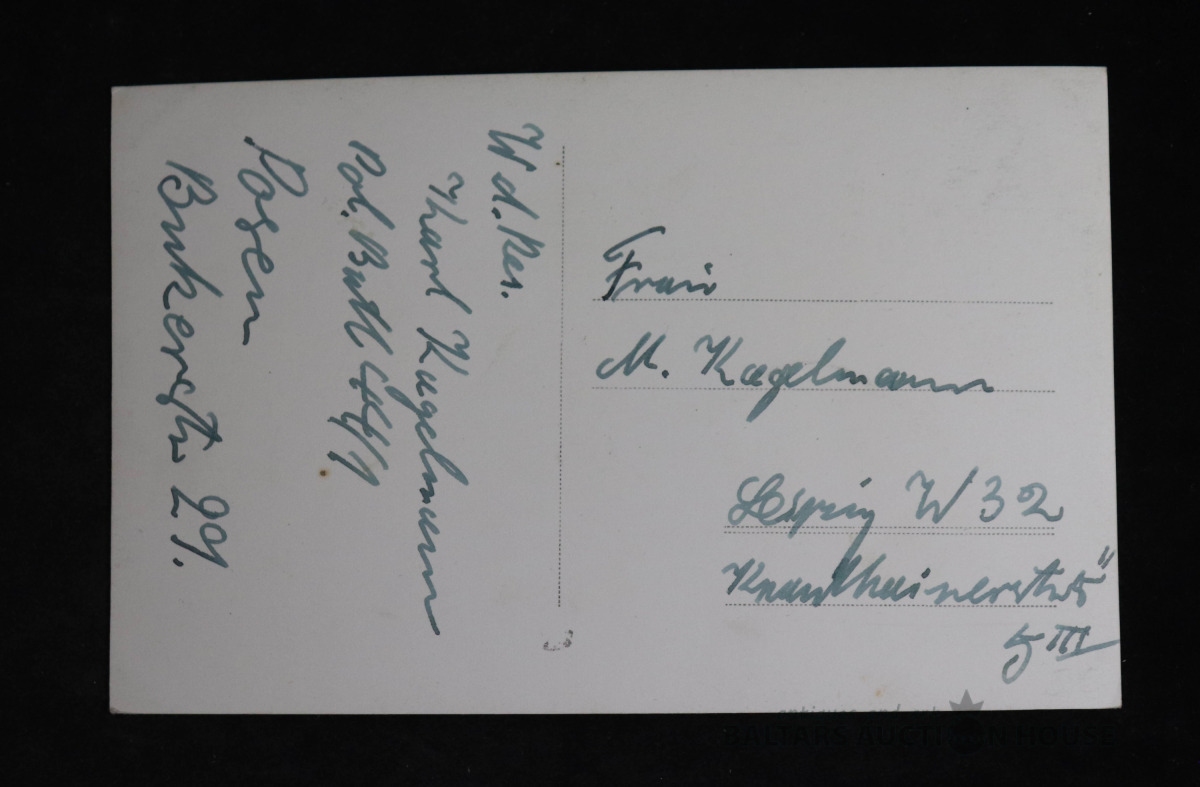 W d. Res.
Karl Kagelmann
Pol. Batl
Posen
29.
Frau
M. Kagelmann
Leipzig W 32
Knauthainerstr 5
5 III
BALTARS AUCTION HOUSE